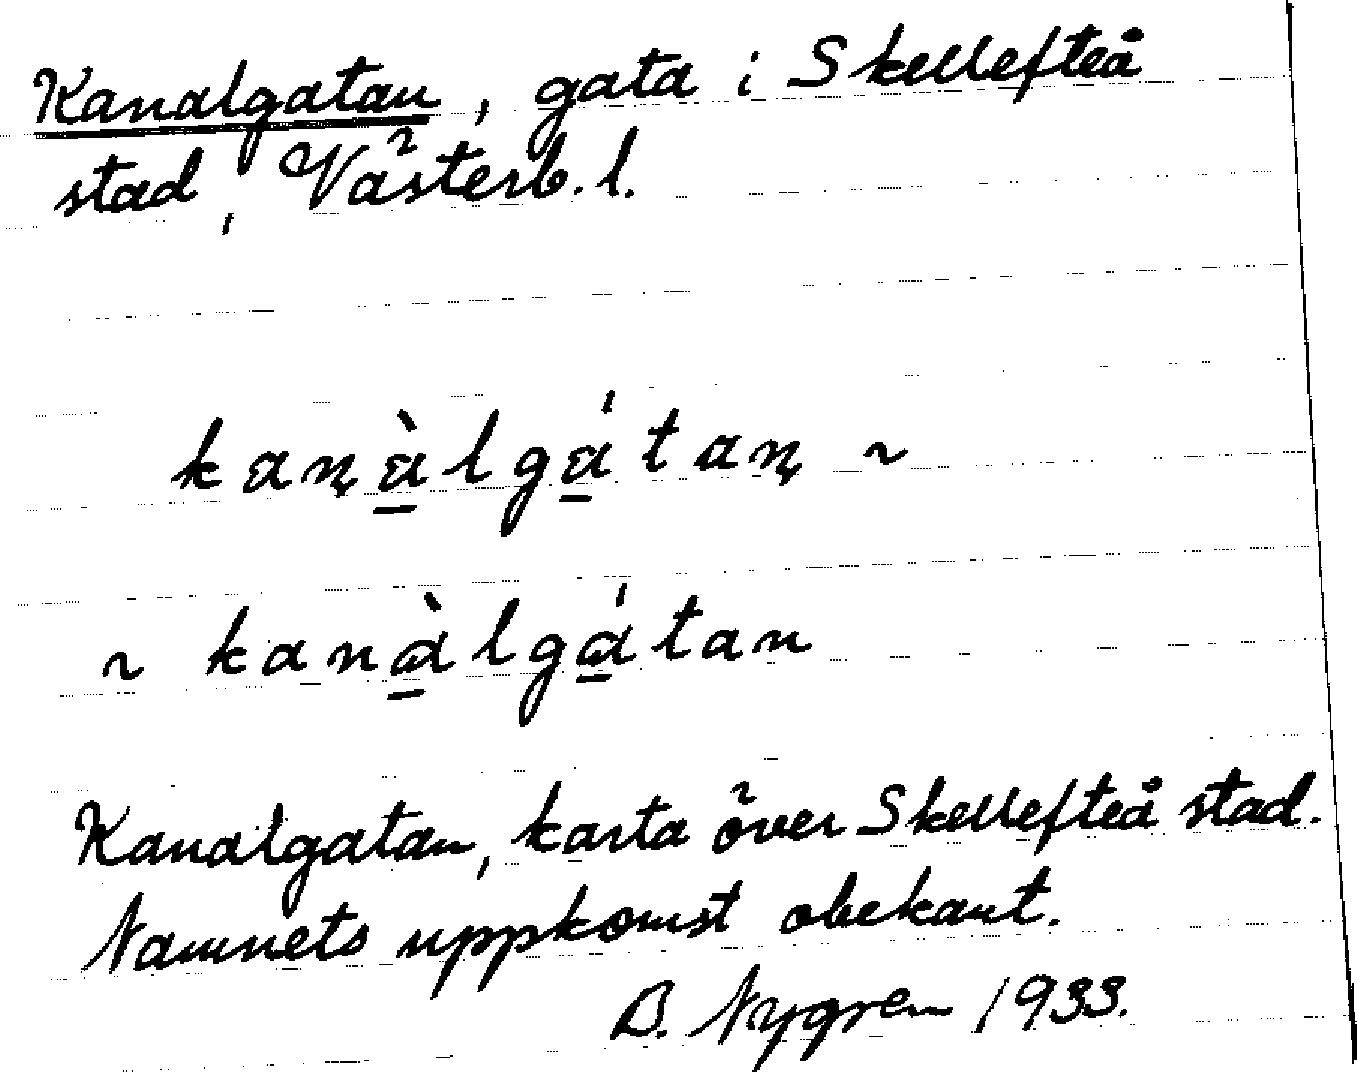 Kanalgatan, gata i Skellefteå
stad, Västerb. l.
kaṇà̱lgá̱taṇ ~
~ kanà̱lgá̱tan
Kanalgatan, karta över Skellefteå stad.
Namnets uppkomst obekant.
B. Nygren 1933.